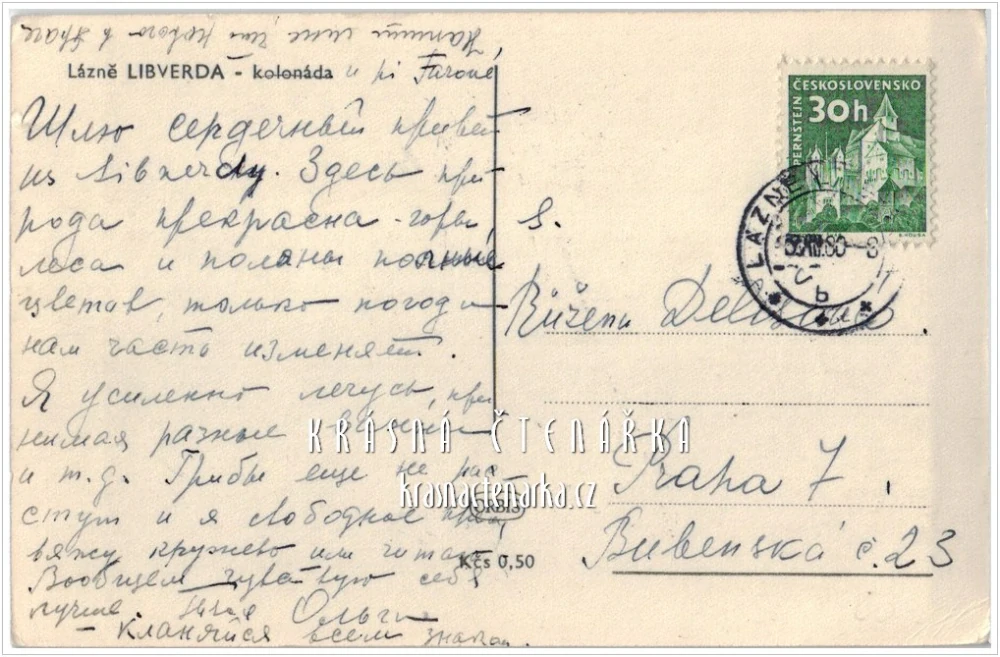 Lázně LIBVERDA - kolonáda
Шлю сердечный привет
из Libverdy. Здесь при
рода прекрасна - горы,
леса и поляны полные
цветов, только погода
нам часто изменяет.
Я усиленно лечусь, при
нимая разные ванны
и т.д. Грибы еще не рас
стут и я свободное время
вяжу кружево или читаю.
Вообщем чувствую себя
лучше. Ваша Ольга
- Кланяйся всем знаком.
ČESKOSLOVENSKO
30h
PERNŠTEJN
LÁZNĚ
b
S.
Růžena
Praha 7.
Bubenská č. 23
ORBIS
Kčs 0,50
KRÁSNÁ ČTENÁŘKA
krasnactenarka.cz